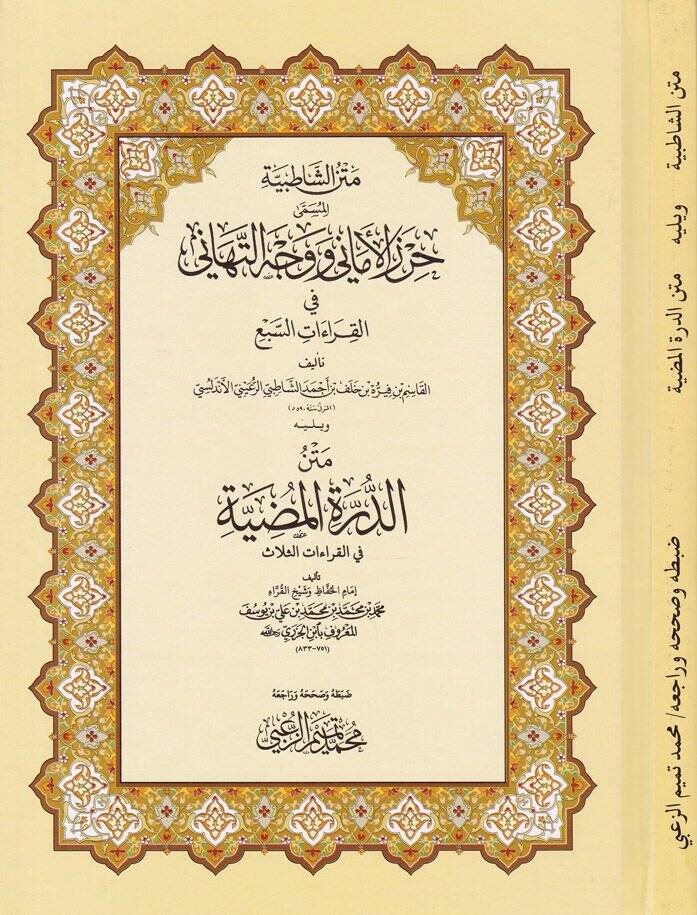 مَتْنُ الشَّاطِبيَّةِ
المُسَمَّىٰ
حِرْزَ الأَمَانِي وَوَجْهَ التَّهَانِي
في
القِرَاءَاتِ السَّبْعِ
تأليف
القَاسِم بْن فِيرُّه بْن خَلَف بْن أَحْمَد الشَّاطِبِيّ الرُّعَيْنِيّ الأَنْدَلُسِيّ
(المتوفى سنة ٥٩٠ ه)
ويليه
مَتْنُ
الدُّرَّةِ المُضِيَّةِ
في القراءات الثلاث
تأليف
إمَامِ الحُفَّاظِ وَشَيْخِ القُرَّاءِ
محمّد بن محمّد بن محمّد بن علي بن يوسف
المَعْرُوف بابن الجَزَرِيّ رحمه الله
(٧٥١-٨٣٣)
ضَبَطَهُ وَصَحَّحَهُ وَرَاجَعَهُ
محمّد تميم الزّعبي
متن الشاطبية ويليه متن الدرة المضية ضبطه وصححه وراجعه/ محمد تميم الزعبي